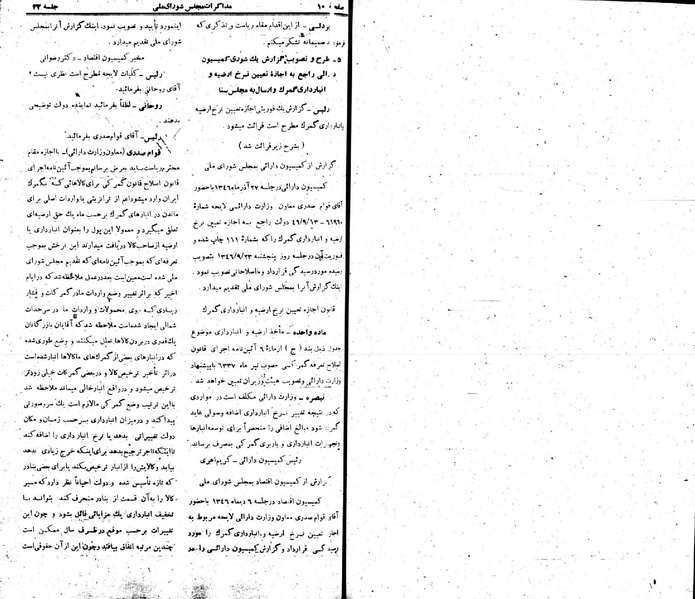 صفحه ۱۰ مذاکرات مجلس شورای ملی جلسه ۲۳
بردلی - از این اقدام مقام ریاست و تذکری که
فرمودند صمیمانه تشکر میکنم.
۵ - طرح و تصویب گزارش یک شوری کمیسیون
دارائی راجع به اجازه تعیین نرخ ارضیه و
انبارداری گمرک و ارسال به مجلس سنا
رئیس - گزارش یک فوریتی اجازه تعیین نرخ ارضیه
انبارداری گمرک مطرح است قرائت میشود.
(بشرح زیر قرائت شد)
گزارش از کمیسیون دارائی بمجلس شورای ملی
کمیسیون دارائی درجلسه ۲۷ آذرماه ۱۳۴۶ با حضور
آقای قوام صدری معاون وزارت دارائی لایحه شماره
۶۱۹۶۰ - ۴۶/۹/۱۳ دولت راجع به اجازه تعیین نرخ
ارضیه و انبارداری گمرک را که بشماره ۱۱۱ چاپ شده و
فوریت آن درجلسه روز پنجشنبه ۱۳۴۶/۹/۲۳ بتصویب
رسیده مورد رسیدگی قرارداد و با اصلاحاتی تصویب نمود.
اینک گزارش آنرا بمجلس شورای ملی تقدیم میدارد.
قانون اجازه تعیین نرخ ارضیه و انبارداری گمرک
ماده واحده - مأخذ ارضیه و انبارداری موضوع
جدول ذیل بند (ج) ازماده ۶ آئین نامه اجرای قانون
اصلاح تعرفه گمرکی مصوب تیر ماه ۱۳۳۷ با پیشنهاد
وزارت دارائی و تصویب هیئت وزیران تعیین خواهد شد.
تبصره - وزارت دارائی مکلف است در مواردی
که در نتیجه تغییر نرخ انبارداری اضافه وصولی عاید
شود مبالغ اضافی را منحصراً برای توسعه انبارها
وتجهیزات انبارداری و باربری گمرکی بمصرف برساند.
رئیس کمیسیون دارائی - کریم اهری
گزارش از کمیسیون اقتصاد بمجلس شورای ملی
کمیسیون اقتصاد درجلسه ۶ دیماه ۱۳۴۶ باحضور
آقای قوام صدری معاون وزارت دارائی لایحه مربوط به
اجازه تعیین نرخ ارضیه و انبارداری گمرک را مورد
رسیدگی قرارداد و گزارش کمیسیون دارائی را در
اینمورد تأیید و تصویب نمود. اینک گزارش آنرا بمجلس
شورای ملی تقدیم میدارد.
مخبر کمیسیون اقتصاد - دکتر رضوانی
رئیس - کلیات لایحه مطرح است نظری نیست؟
آقای روحانی بفرمائید.
روحانی - لطفاً بفرمائید نماینده دولت توضیحی
بدهند.
رئیس - آقای قوام صدری بفرمائید.
قوام صدری (معاون وزارت دارائی) - با اجازه مقام
محترم ریاست باید بعرض برسانم بموجب آئین نامه اجرای
قانون اصلاح قانون گمرکی برای کالاهائی که بگمرک
ایران وارد میشود اعم از ترانزیتی یا واردات اصلی برای
ماندن در انبارهای گمرک برحسب ماه یک حق ارضیه‌ای
تعلق میگیرد و معمولا این پول را بعنوان انبارداری یا
ارضیه از صاحب کالا دریافت میدارند این نرخش بموجب
تعرفه‌ای که بموجب آئین نامه‌ای که تقدیم مجلس شورای
ملی شده است معین است بعد در عمل ملاحظه شد که در ایام
اخیر که براثر تغییر وضع واردات ما در گمرکات و فشار
زیادی که روی محمولات و واردات ما در سرحدات
شمالی ایجاد شده است ملاحظه شد که آقایان بازرگانان
یک قدری دربردن کالاها تعلل میکنند و وضع طوری شده
که در انبارهای بعضی از گمرک های ما کالاها انبار شده است
دراثر تأخیر ترخیص کالا و در بعضی گمرکات خیلی زودتر
ترخیص میشود و درواقع انبارخالی میماند ملاحظه شد
با این ترتیب وضع گمرکی ما لازم است یک سر و صورتی
پیدا کند و در میزان انبارداری برحسب زمان و مکان
دولت تغییراتی بدهد یا نرخ انبار داری را اضافه کند
تا اینکه تاجر ترجیح بدهد برای اینکه خرج زیادی ندهد
بیاید و کالایش را از انبار ترخیص بکند یا برای بعضی بنادر
که تازه تأسیس شده و دولت احیاناً نظر دارد که مسیر
کالا را به آن قسمت از بنادر منحرف کند بتواند با
تخفیف انبارداری یک مزایائی قائل بشود و چون این
تغییرات برحسب موقع درظرف سال ممکن است
چندین مرتبه اتفاق بیافتد و چون این از آن حقوقی است